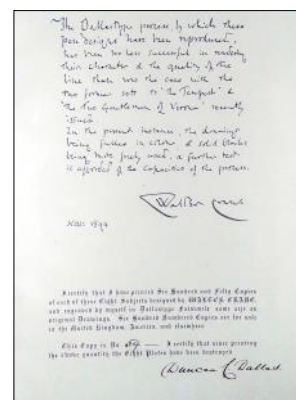 The Dallastype process by which these
pen designs have been reproduced,
has been no less successful in rendering
their character & the quality of the
line than was the case with the
two former sets to 'The Tempest' &
'The Two Gentlemen of Verona' recently
issued.
In the present instance, the drawings
being fuller in colour & solid blacks
being more freely used, a further test
is afforded of the capacities of the process.
Walter Crane
Nov: 1894
I certify that I have printed Six Hundred and Fifty Copies
of each of these Eight Subjects designed by WALTER CRANE,
and engraved by myself in Dallastype Facsimile same size as
original Drawings. Six Hundred Numbered Copies are for sale
in the United Kingdom, America, and elsewhere
This Copy is No. — I certify that since printing
the above quantity the Eight Plates have been destroyed
Duncan C. Dallas.